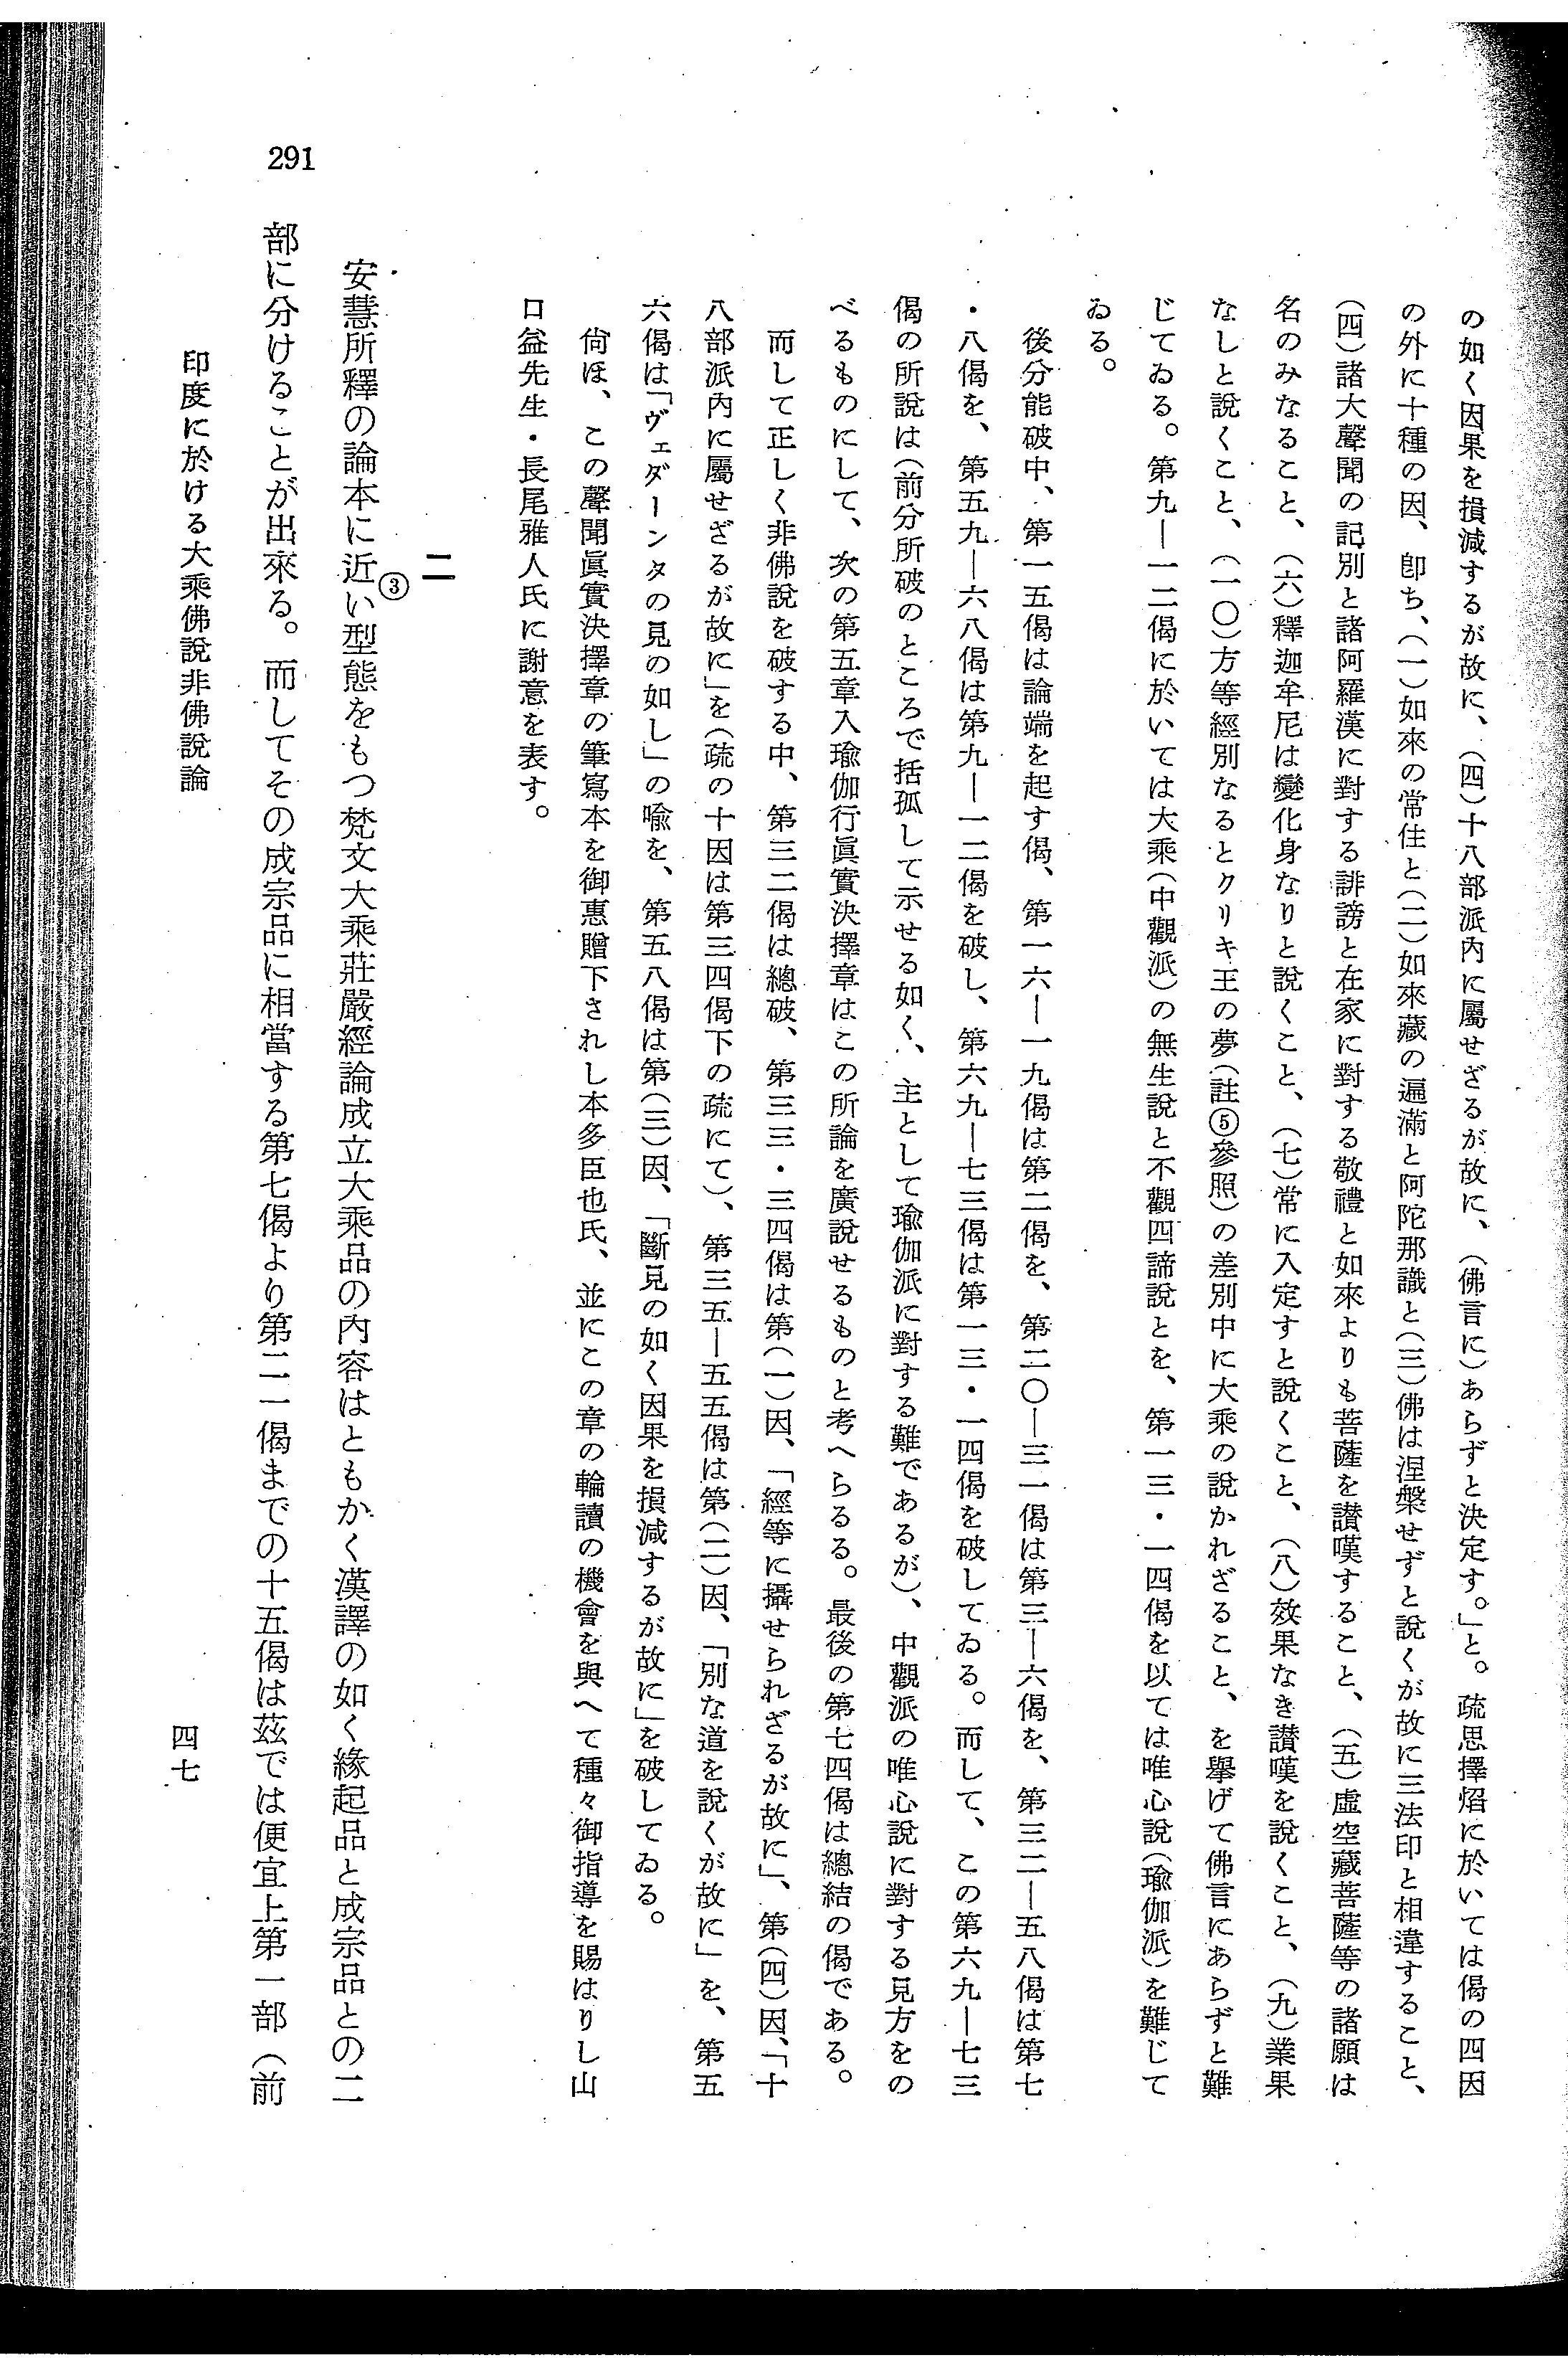 の如く因果を損減するが故に、（四）十八部派内に屬せざるが故に、（佛言に）あらずと決定す。」と。疏思擇焰に於いては偈の四因
の外に十種の因、卽ち、（一）如來の常住と（二）如來藏の遍滿と阿陀那識と（三）佛は涅槃せずと說くが故に三法印と相違すること、
（四）諸大聲聞の記別と諸阿羅漢に對する誹謗と在家に對する敬禮と如來よりも菩薩を讃嘆すること、（五）虛空藏菩薩等の諸願は
名のみなること、（六）釋迦牟尼は變化身なりと說くこと、（七）常に入定すと說くこと、（八）效果なき讃嘆を說くこと、（九）業果
なしと說くこと、（一〇）方等經別なるとクリキ王の夢（註⑤參照）の差別中に大乘の說かれざること、を擧げて佛言にあらずと難
じてゐる。第九—一二偈に於いては大乘（中觀派）の無生說と不觀四諦說とを、第一三・一四偈を以ては唯心說（瑜伽派）を難じて
ゐる。
後分能破中、第一五偈は論端を起す偈、第一六—一九偈は第二偈を、第二〇—三一偈は第三—六偈を、第三二—五八偈は第七
・八偈を、第五九—六八偈は第九—一二偈を破し、第六九—七三偈は第一三・一四偈を破してゐる。而して、この第六九—七三
偈の所說は（前分所破のところで括孤して示せる如く、主として瑜伽派に對する難であるが）、中觀派の唯心說に對する見方をの
べるものにして、次の第五章入瑜伽行眞實決擇章はこの所論を廣說せるものと考へらるる。最後の第七四偈は總結の偈である。
而して正しく非佛說を破する中、第三二偈は總破、第三三・三四偈は第（一）因、「經等に攝せられざるが故に」、第（四）因、「十
八部派內に屬せざるが故に」を（疏の十因は第三四偈下の疏にて）、第三五—五五偈は第（二）因、「別な道を說くが故に」を、第五
六偈は「ヴェダーンタの見の如し」の喩を、第五八偈は第（三）因、「斷見の如く因果を損減するが故に」を破してゐる。
尙ほ、この聲聞眞實決擇章の筆寫本を御惠贈下されし本多臣也氏、並にこの章の輪讀の機會を與へて種々御指導を賜はりし山
口益先生・長尾雅人氏に謝意を表す。
二
安慧所釋の論本に近い③型態をもつ梵文大乘莊嚴經論成立大乘品の內容はともかく漢譯の如く緣起品と成宗品との二
部に分けることが出來る。而してその成宗品に相當する第七偈より第二一偈までの十五偈は茲では便宜上第一部（前
印度に於ける大乘佛說非佛說論
四七
291